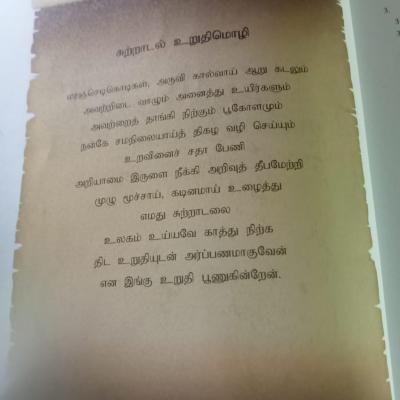 சுற்றாடல் உறுதிமொழி
மரஞ்செடிகொடிகள், அருவி கால்வாய் ஆறு கடலும்
அவற்றிடை வாழும் அனைத்து உயிர்களும்
அவற்றைத் தாங்கி நிற்கும் பூகோளமும்
நன்கே சமநிலையாய்த் திகழ வழி செய்யும்
உறவினைச் சதா பேணி
அறியாமை இருளை நீக்கி அறிவுத் தீபமேற்றி
முழு மூச்சாய், கடினமாய் உழைத்து
எமது சுற்றாடலை
உலகம் உய்யவே காத்து நிற்க
திட உறுதியுடன் அர்ப்பணமாகுவேன்
என இங்கு உறுதி பூணுகின்றேன்.
3.
3